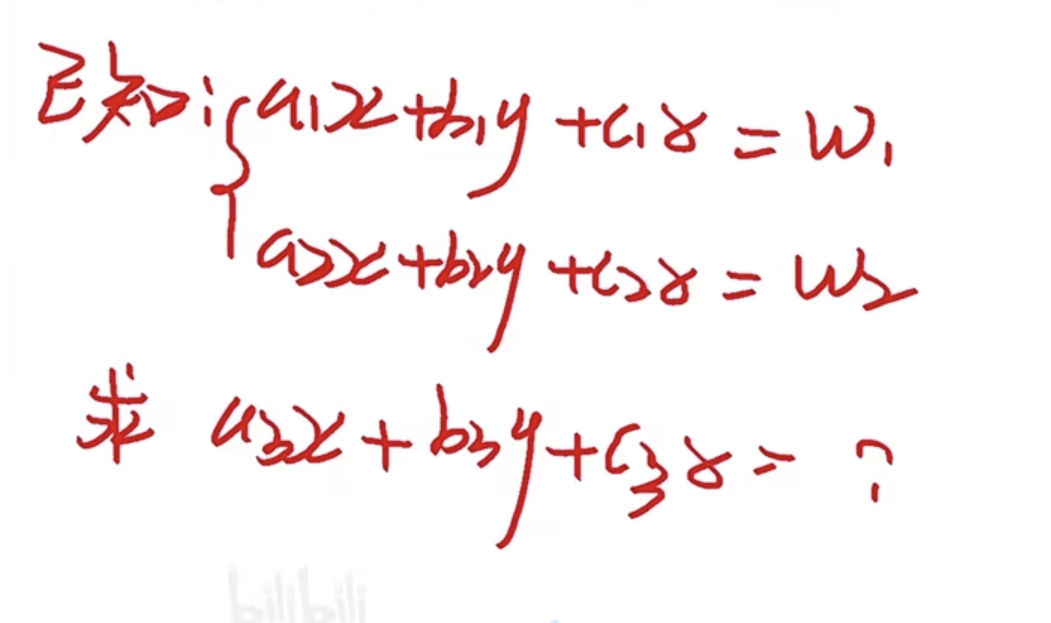 已知:{a₁x+b₁y+c₁z=w₁
a₂x+b₂y+c₂z=w₂
求 a₃x+b₃y+c₃z=?
bilibili